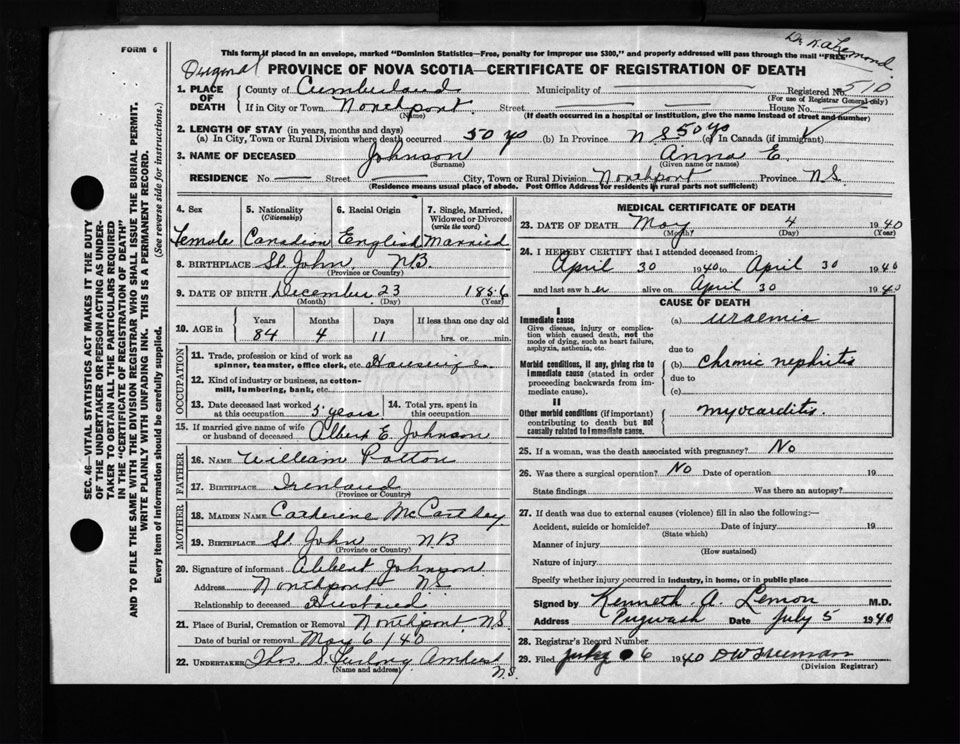 FORM 6
This form if placed in an envelope, marked "Dominion Statistics—Free, penalty for improper use $300," and properly addressed will pass through the mail "FREE"
Original PROVINCE OF NOVA SCOTIA—CERTIFICATE OF REGISTRATION OF DEATH
1. PLACE OF DEATH County of Cumberland Municipality of Registered No. 510
(For use of Registrar General only)
If in City or Town Northport Street House No.
(Name) (If death occurred in a hospital or institution, give the name instead of street and number)
2. LENGTH OF STAY (in years, months and days)
(a) In City, Town or Rural Division where death occurred 50 yo (b) In Province N S 50 yo (c) In Canada (if immigrant)
3. NAME OF DECEASED Johnson Anna E.
(Surname) (Given name or names)
RESIDENCE No. Street City, Town or Rural Division Northport Province N.S.
(Residence means usual place of abode. Post Office Address for residents in rural parts not sufficient)
4. Sex Female
5. Nationality (Citizenship) Canadian
6. Racial Origin English
7. Single, Married, Widowed or Divorced (write the word) Married
8. BIRTHPLACE St. John NB.
(Province or Country)
9. DATE OF BIRTH December 23 1856
(Month) (Day) (Year)
10. AGE in Years Months Days If less than one day old
84 4 11 hrs. or min.
OCCUPATION
11. Trade, profession or kind of work as spinner, teamster, office clerk, etc. Housewife
12. Kind of industry or business, as cotton-mill, lumbering, bank, etc.
13. Date deceased last worked at this occupation 5 years
14. Total yrs. spent in this occupation
15. If married give name of wife or husband of deceased Albert E. Johnson
FATHER
16. Name William Patton
17. Birthplace Ireland
(Province or Country)
MOTHER
18. Maiden Name Catherine McCarthey
19. Birthplace St. John NB
(Province or Country)
20. Signature of informant Albert Johnson
Address Northport NS
Relationship to deceased Husband
21. Place of Burial, Cremation or Removal Northport N.S.
Date of burial or removal May 6/40
22. UNDERTAKER Thos. S. Amherst
(Name and address) N.S.
MEDICAL CERTIFICATE OF DEATH
23. DATE OF DEATH May 4 1940
(Month) (Day) (Year)
24. I HEREBY CERTIFY that I attended deceased from:
April 30 1940 to April 30 1940
and last saw her alive on April 30 1940
CAUSE OF DEATH
I
Immediate cause (a) uraemia
Give disease, injury or complication which caused death, not the mode of dying, such as heart failure, asphyxia, asthenia, etc.
due to
Morbid conditions, if any, giving rise to immediate cause (stated in order proceeding backwards from immediate cause).
(b) Chronic nephritis
due to
(c)
II
Other morbid conditions (if important) contributing to death but not causally related to immediate cause.
myocarditis.
25. If a woman, was the death associated with pregnancy? No
26. Was there a surgical operation? No Date of operation 19
State findings Was there an autopsy?
27. If death was due to external causes (violence) fill in also the following:—
Accident, suicide or homicide? Date of injury 19
(State which)
Manner of injury
(How sustained)
Nature of injury
Specify whether injury occurred in industry, in home, or in public place
Signed by Kenneth A. Lemon M.D.
Address Pugwash Date July 5 1940
28. Registrar's Record Number
29. Filed July 6 1940 DW Freeman
(Division Registrar)
SEC. 46—VITAL STATISTICS ACT MAKES IT THE DUTY
OF THE UNDERTAKER OR PERSON ACTING AS UNDER-
TAKER TO OBTAIN ALL THE PARTICULARS REQUIRED
IN THE "CERTIFICATE OF REGISTRATION OF DEATH"
AND TO FILE THE SAME WITH THE DIVISION REGISTRAR WHO SHALL ISSUE THE BURIAL PERMIT.
WRITE PLAINLY WITH UNFADING INK. THIS IS A PERMANENT RECORD.
Every item of information should be carefully supplied. (See reverse side for instructions.)